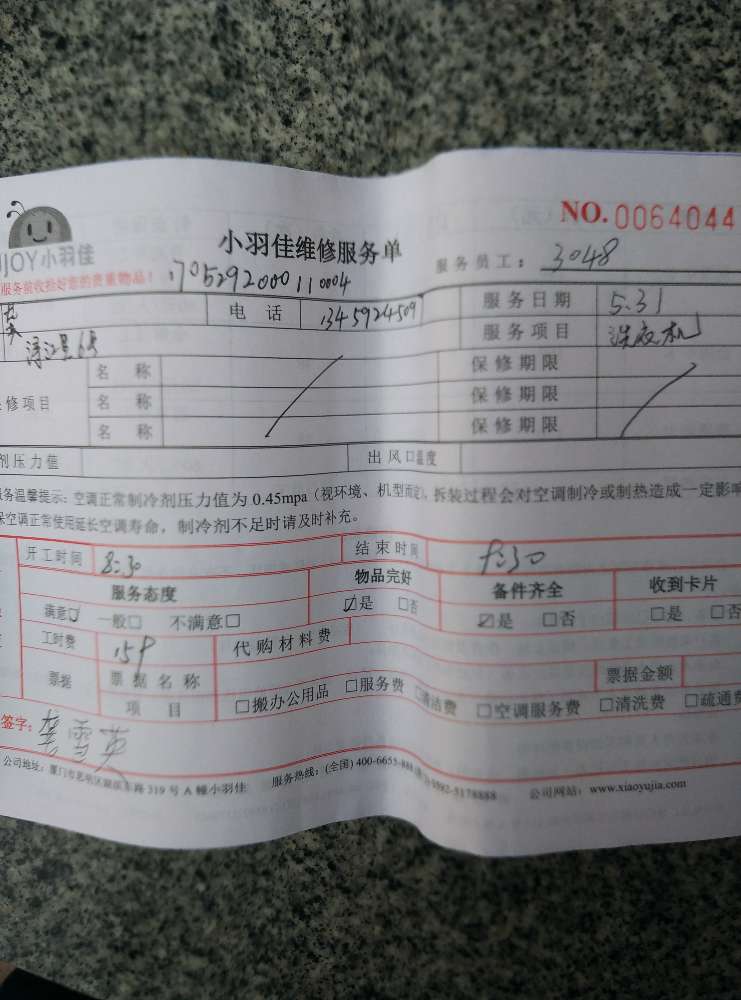 NO.0064044
JOY小羽佳
小羽佳维修服务单
服务员工：3048
服务前收拾好您的贵重物品！
1705292000110004
电 话 服务日期 5.31
服务项目
名 称 保修期限
修项目 名 称 保修期限
名 称 保修期限
剂压力值 出风口温度
服务温馨提示：空调正常制冷剂压力值为 0.45mpa（视环境、机型而定），拆装过程会对空调制冷或制热造成一定影响
保空调正常使用延长空调寿命，制冷剂不足时请及时补充。
开工时间 8:30 结束时间
服务态度 物品完好 备件齐全 收到卡片
满意☑ 一般□ 不满意□ ☑是 □否 ☑是 □否 □是 □否
工时费 代购材料费
票据 票据名称 票据金额
项 目 □搬办公用品 □服务费 清洁费 □空调服务费 □清洗费 □疏通费
签字： 雪英
公司地址： 路 319 号 A 幢小羽佳 服务热线：(全国) 400-6655-888 0592-5178888 公司网站：www.xiaoyujia.com